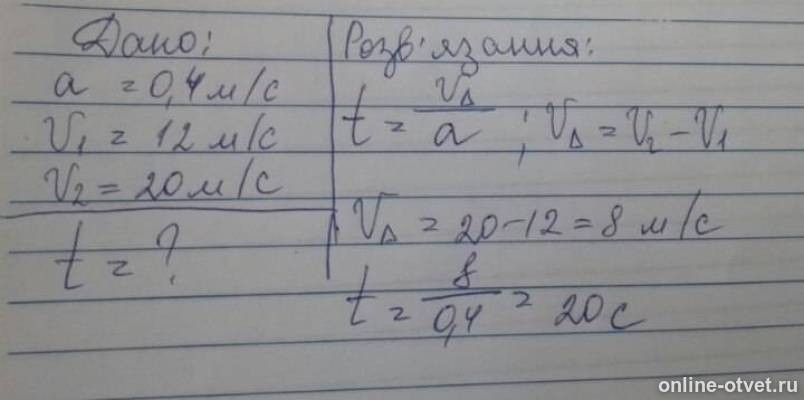 Дано:
a = 0,4 м/с
V₁ = 12 м/с
V₂ = 20 м/с
t = ?
Розв'язання:
t = V∆/a ; V∆ = V₂ - V₁
V∆ = 20 - 12 = 8 м/с
t = 8/0,4 = 20 с
online-otvet.ru